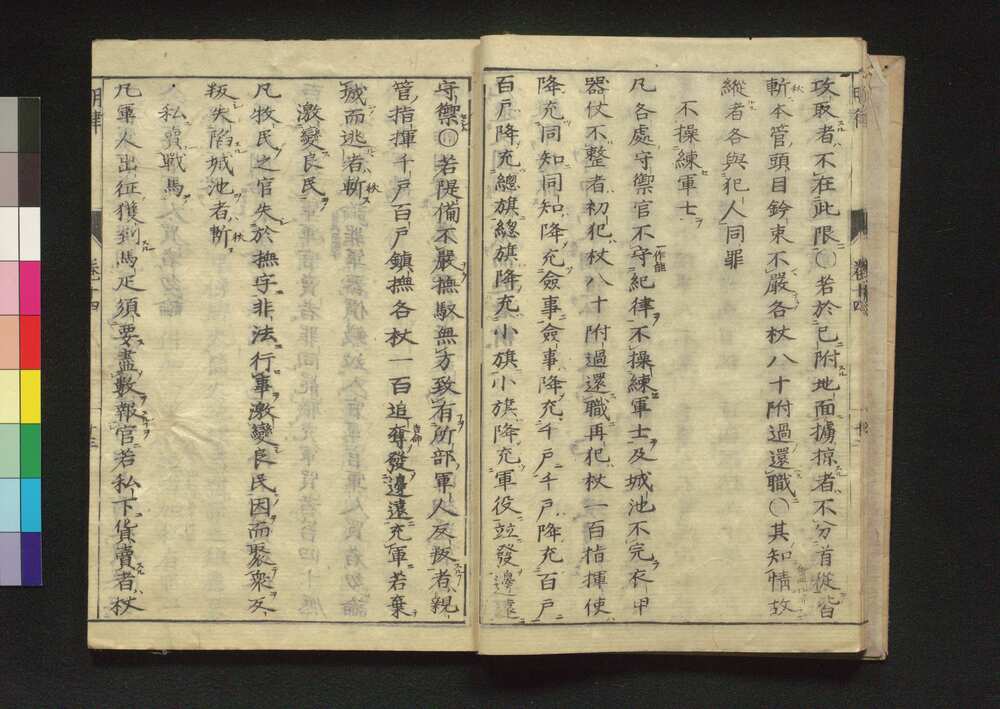 攻取者不在此限〇若於已附地面擄掠者不分首從皆
斬本管頭目鈐束不嚴各杖八十附過還職〇其知情故
縱者各與犯人同罪
不操練軍士
凡各處守禦官不守紀律不操練軍士及城池不完衣甲
器仗不整者初犯杖八十附過還職再犯杖一百指揮使
降充同知同知降充僉事僉事降充千戶千戶降充百戶
百戶降充總旗總旗降充小旗小旗降充軍役並發邊遠
守禦〇若隄備不嚴撫馭無方致有所部軍人反叛者親
管指揮千戶百戶鎮撫各杖一百追奪發邊遠充軍若棄
城而逃者斬
激變良民
凡牧民之官失於撫字非法行事激變良民因而聚衆反
叛失陷城池者斬
私賣戰馬
凡軍人出征獲到馬疋須要盡數報官若私下貨賣者杖
明律
卷十四